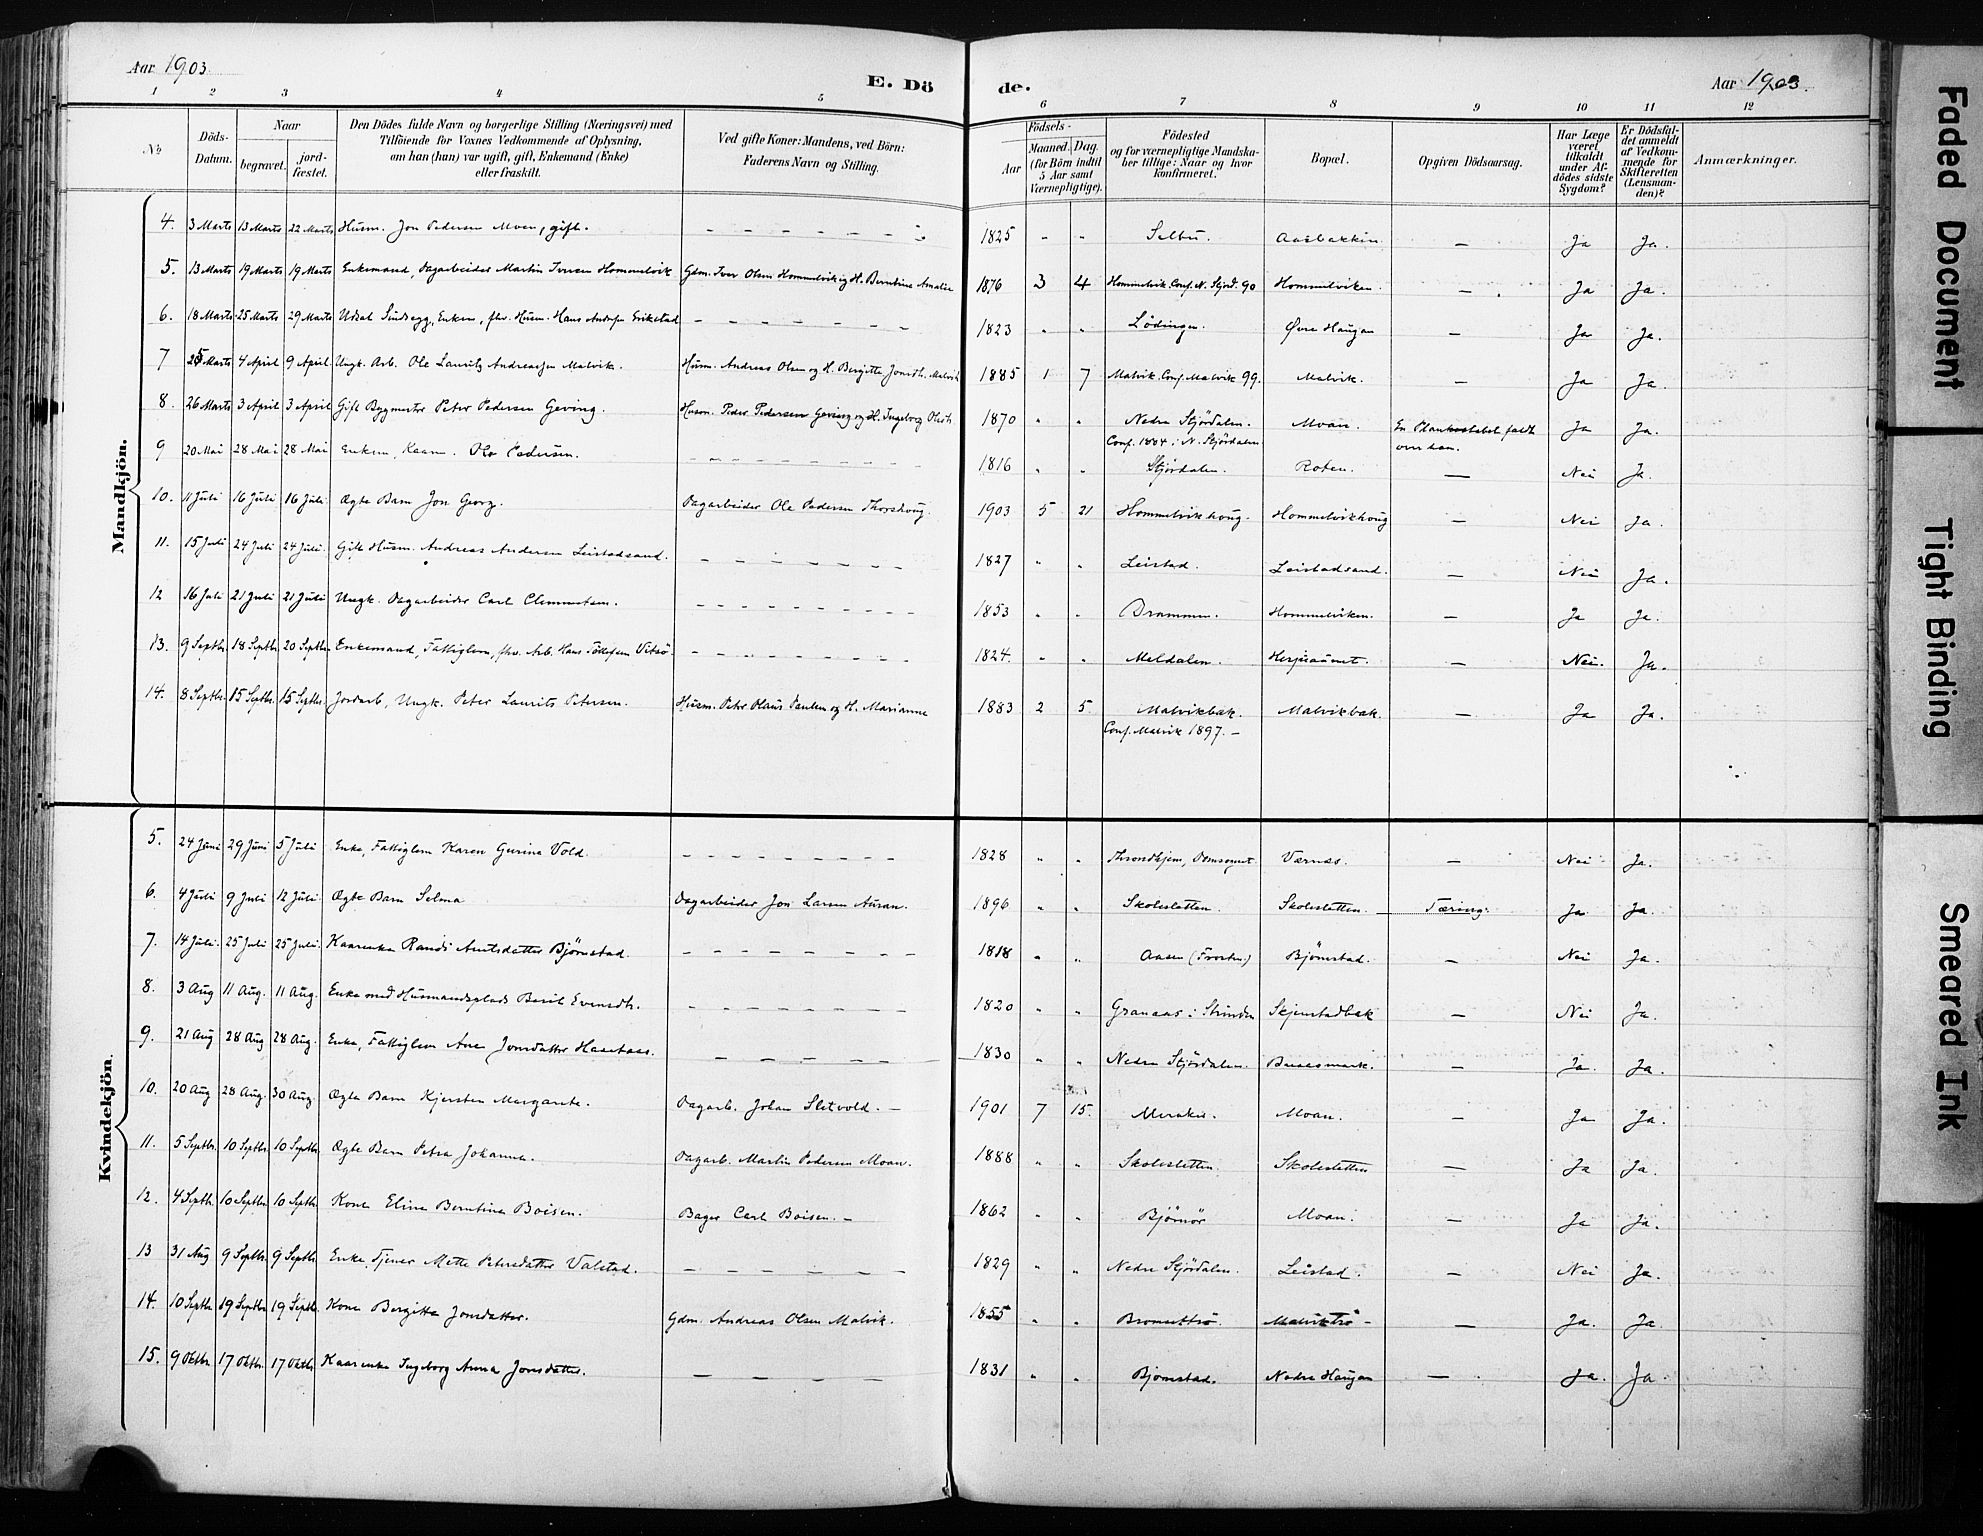 Aar 1903
E. Dö
de.
Aar 1903.
1 2 3 4 5 6 7 8 9 10 11 12
No
Döds-Datum.
Naar
begravet.
jord-fæstet.
Den Dödes fulde Navn og borgerlige Stilling (Næringsvei) med
Tilföiende for Voxnes Vedkommende af Oplysning,
om han (hun) var ugift, gift, Enkemand (Enke)
eller fraskilt.
Ved gifte Koner: Mandens, ved Börn:
Faderens Navn og Stilling.
Födsels-
Aar
Maaned. Dag.
(for Börn indtil 5 Aar samt Værnepligtige).
Födested
og for værnepligtige Mandskaber tillige: Naar og hvor konfirmeret.
Bopæl.
Opgiven Dödsaarsag.
Har Læge været tilkaldt under Afdödes sidste Sygdom?
Er Dödsfaldet anmeldt af Vedkommende for Skifteretten (Lensmanden)?
Anmærkninger.
Mandkjön.
4. 3 Marts 13 Marts 22 Marts Husm. Jon Pedersen Moen, gift. 1825 Selbu. Aasbakken — Ja Ja.
5. 13 Marts 19 Marts 19 Marts Enkemand, Dagarbeider Martin Iversen Hommelvik Gdm. Iver Olsen Hommelvik og H. Berntine Amalie 1876 3 4 Hommelvik. Conf. N. Stjörd. 90 Hommelviken. — Ja Ja.
6. 18 Marts 25 Marts 29 Marts Enkem, fhv. Husm. Hans 1823 Lödingen. Övre Haugan — Ja Ja.
7 25 Marts 4 April 9 April Ungk. Arb. Ole Lauritz Andreassen Malvik. Husm. Andreas Olsen og H. Bergitte Jonsdtr. Malvik 1885 1 7 Malvik. Conf. Malvik 99. Malvik. — Ja Ja.
8. 26 Marts 3 April 3 April Gift Bygmester Peter Pedersen Geving. Husm. Peder Pedersen Geving og H. Ingeborg Olsdtr. 1870 Nedre Stjördalen. Conf. 1884 i N. Stjördalen Moan. En Plankestabel faldt over ham. Ja Ja.
9 20 Mai 28 Mai 28 Mai Enkem, Kaarm. Ole Pedersen. 1816 Stjördalen. Roten. — Nei Ja.
10. 11 Juli 16 Juli 16 Juli Ægte Barn Jon Georg. Dagarbeider Ole Pedersen Thorshoug. 1903 5 21 Hommelvikhoug. Hommelvikhoug — Nei Ja.
11. 15 Juli 24 Juli 24 Juli. Gift Husm. Andreas Andersen Leistadsand. 1827 Leistad. Leistadsand. — Nei Ja.
12 16 Juli 21 Juli 21 Juli Ungk. Dagarbeider Carl Clemmetsen. 1853 Drammen. Hommelviken. — Ja Ja.
13. 9 Septbr. 18 Septbr. 20 Septbr. Enkemand, Fattiglem, fhv. Arb. Hans Töllefsen Vitsö. 1824. Meldalen. — Nei. Ja.
14. 8 Septbr. 15 Septbr. 15 Septbr. Jordarb, Ungk. Peter Laurits Petersen. Husm. Peter Olaus Paulsen og H. Marianne 1883 2 5 Malvikbak. Conf. Malvik 1897. — Malvikbak. — Ja Ja.
Kvindekjön.
5. 24 Juni 29 Juni 5 Juli Enke, Fattiglem Karen Gurina Vold. 1828 Throndhjem, Domsognet Værnes. — Nei Ja.
6. 4 Juli 9 Juli 12 Juli. Ægte Barn Selma Dagarbeider Jon Larsen Auran. 1896 Skolesletten. Skolesletten. Tæring. Ja Ja.
7. 14 Juli. 25 Juli 25 Juli. Kaarenke Randi Arntsdatter Björnstad. 1818 Aasen (Frosten) Björnstad. — Nei Ja.
8. 3 Aug 11 Aug. 11 Aug. Enke med Husmandsplads Berit Evensdtr. 1820 Granaas i Strinden Skjenstadbak — Nei Ja.
9. 21 Aug 28 Aug 28 Aug. Enke, Fattiglem Ane Jonsdatter 1830 Nedre Stjördalen. — Ja. Ja.
10. 20 Aug 28 Aug. 30 Aug. Ægte Barn Kjersten Margarete. Dagarb. Johan Sletvold. — 1901 7 15. Meraker. Moan. — Ja Ja.
11. 5 Septbr. 10 Septbr. 10 Septbr. Ægte Barn Petra Johanna. Dagarb. Martin Pedersen Moan. 1888 Skolesletten. Skolesletten — Ja Ja.
12. 4 Septbr. 10 Septbr. 10 Septbr. Kone Elina Berntina Boisen. Bager Carl Boisen. — 1862 Björnör Moan. — Ja Ja.
13 31 Aug 9 Septbr. 9 Septbr. Enke, Tjener Mette Petersdatter Valstad. 1829 Nedre Stjördalen. Leistad. — Nei Ja.
14. 10 Septbr 19 Septbr 19 Septbr. Kone Bergitta Jonsdatter. Gdm. Andreas Olsen Malvik. 1855 Malviktrö — Ja. Ja.
15. 9 Oktbr. 17 Oktbr. 17 Oktbr. Kaarenke Ingeborg Anna Jonsdatter. 1831 Björnstad. Nedre Haugan — Ja. Ja.
Faded Document
Tight Binding
Smeared Ink